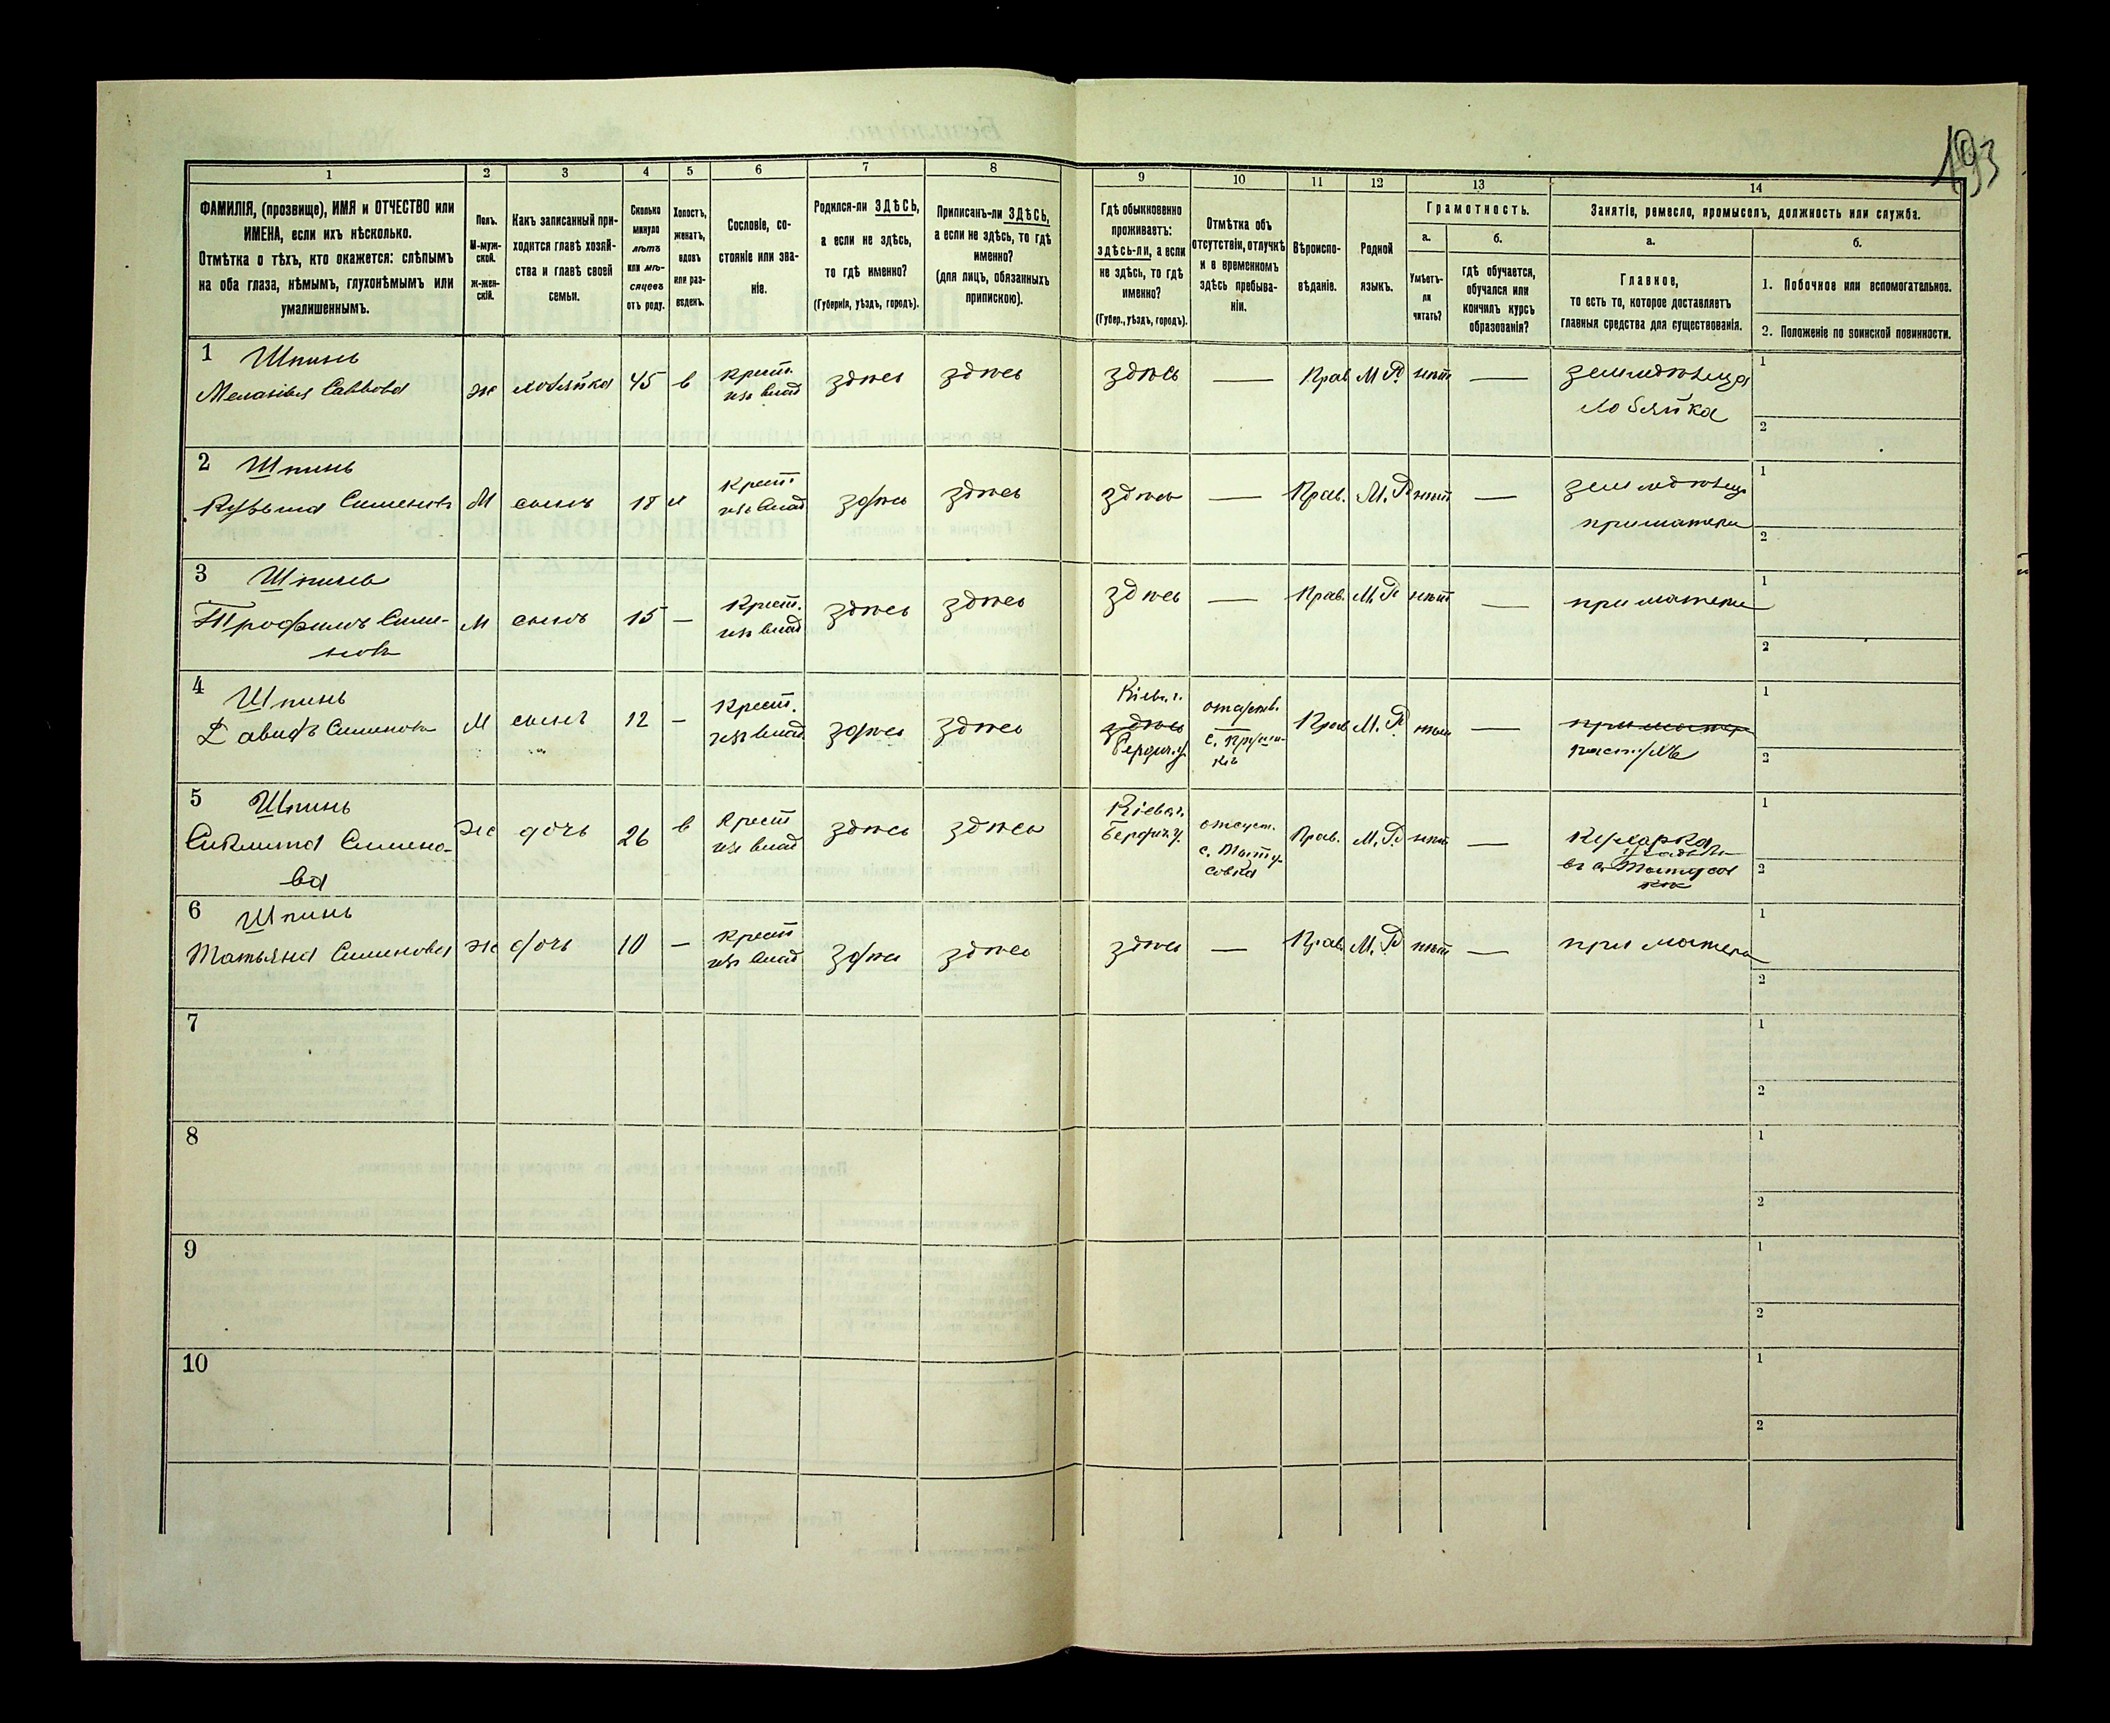 193
1
2
3
4
5
6
7
8
9
10
11
12
13
14
ФАМИЛІЯ, (прозвище), ИМЯ и ОТЧЕСТВО или
ИМЕНА, если ихъ нѣсколько.
Отмѣтка о тѣхъ, кто окажется: слѣпымъ
на оба глаза, нѣмымъ, глухонѣмымъ или
умалишеннымъ.
Полъ.
М-муж-
ской.
ж-жен-
скій.
Какъ записанный при-
ходится главѣ хозяй-
ства и главѣ своей
семьи.
Сколько
минуло
лѣтъ
или мѣ-
сяцевъ
отъ роду.
Холостъ,
женатъ,
вдовъ
или раз-
веденъ.
Сословіе, со-
стояніе или зва-
ніе.
Родился-ли ЗДѢСЬ,
а если не здѣсь,
то гдѣ именно?
(Губернія, уѣздъ, городъ).
Приписанъ-ли ЗДѢСЬ,
а если не здѣсь, то гдѣ
именно?
(для лицъ, обязанныхъ
припискою).
Гдѣ обыкновенно
проживаетъ:
здѣсь-ли, а если
не здѣсь, то гдѣ
именно?
(Губер., уѣздъ, городъ).
Отмѣтка объ
отсутствіи, отлучкѣ
и о временномъ
здѣсь пребыва-
ніи.
Вѣроиспо-
вѣданіе.
Родной
языкъ.
Грамотность.
а.
Умѣетъ-
ли
читать?
б.
гдѣ обучается,
обучался или
кончилъ курсъ
образованія?
Занятіе, ремесло, промыселъ, должность или служба.
а.
Главное,
то есть то, которое доставляетъ
главныя средства для существованія.
б.
1. Побочное или вспомогательное.
2. Положеніе по воинской повинности.
1 Шпинь
Меланія Саввова
ж хозяйка 45 в
крест.
изъ влад
здѣсь здѣсь здѣсь — Прав М Р. нѣтъ —
земледѣлица
хозяйка
1
2
2 Шпинь
Кузьма Сименовъ
М сынъ 18 х
крест.
изъ влад
здѣсь здѣсь здѣсь — Прав. М. Р нѣтъ —
при матери
1
2
3 Шпинь
Трофимъ Симе-
новъ
М сынъ 15 —
крест.
изъ влад
здѣсь здѣсь здѣсь — Прав. М. Р нѣтъ —
при матери
1
2
4 Шпинь
Давидъ Сименовъ
М сынъ 12 —
крест.
изъ влад.
здѣсь здѣсь
Кіев. г.
здѣсь
Бердич. у.
отсутств.
Прав М. Р нѣтъ —
при матери
пастухъ
1
2
5 Шпинь
Симено-
ва
ж дочь 26 в
крест
изъ влад
здѣсь здѣсь
Кіев. г.
Бердич. у.
отсутст.
Прав. М. Р. нѣтъ —
кухарка
1
2
6 Шпинь
Татьяна Сименова
ж дочь 10 —
крест
изъ влад
здѣсь здѣсь здѣсь — Прав М. Р нѣтъ —
при матери
1
2
7
1
2
8
1
2
9
1
2
10
1
2